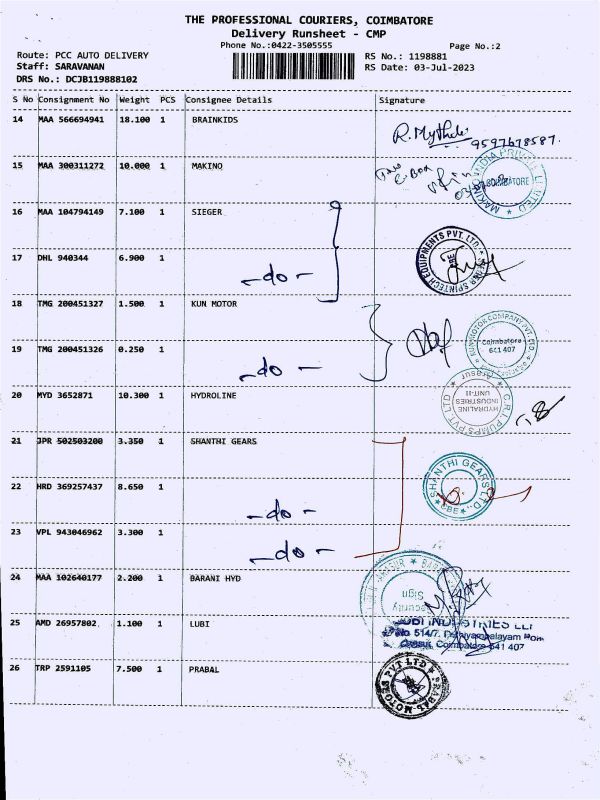 THE PROFESSIONAL COURIERS, COIMBATORE
Delivery Runsheet - CMP
Phone No.:0422-3505555
Page No.:2
Route: PCC AUTO DELIVERY
RS No.: 1198881
Staff: SARAVANAN
RS Date: 03-Jul-2023
DRS No.: DCJB119888102
S No Consignment No Weight PCS Consignee Details Signature
14 MAA 566694941 18.100 1 BRAINKIDS
R. Mythili
9597678587.
15 MAA 300311272 10.000 1 MAKINO
MAKINO INDIA PRIVATE LIMITED
COIMBATORE
16 MAA 104794149 7.100 1 SIEGER
17 DHL 940344 6.900 1
SIEGER SPINTECH EQUIPMENTS PVT. LTD.
CBE
- do -
18 TMG 200451327 1.500 1 KUN MOTOR
KUN MOTOR COMPANY PVT. LTD.
Coimbatore
641 407
19 TMG 200451326 0.250 1
- do -
20 MYD 3652871 10.300 1 HYDROLINE
C.R.I. PUMPS PVT LTD
HYDRALINE
INDUSTRIES
UNIT-II
21 JPR 502503200 3.350 1 SHANTHI GEARS
SHANTHI GEARS LTD.
CBE
22 HRD 369257437 8.650 1
- do -
23 VPL 943046962 3.300 1
- do -
24 MAA 102640177 2.200 1 BARANI HYD
Security
Sign
25 AMD 26957802 1.100 1 LUBI
LUBI INDUSTRIES LLP
No 514/7,
Coimbatore 641 407
26 TRP 2591105 7.500 1 PRABAL
PRABAL MOTORS PVT LTD